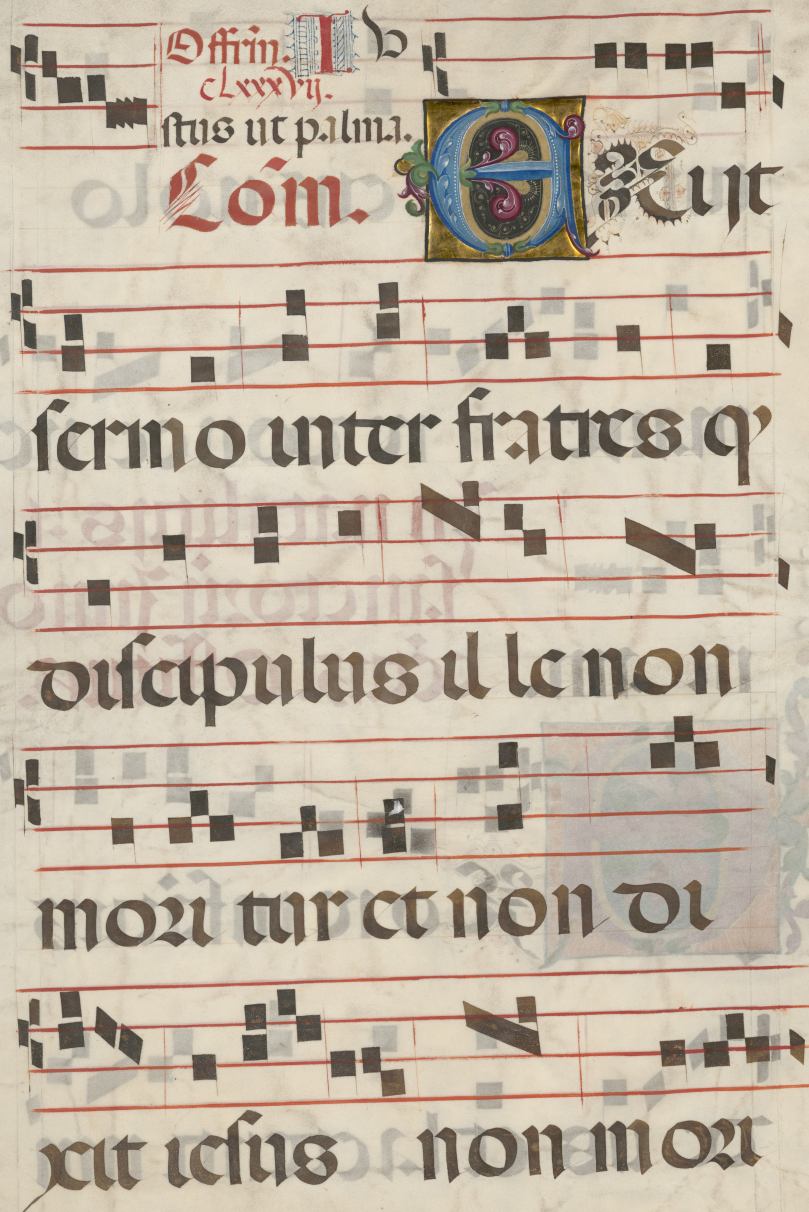 Offrin. Iu
clxxxvij.
stus ut palma.
Com. Exijt
sermo inter fratres q'
discipulus ille non
mori tur et non di
xit iesus non mori